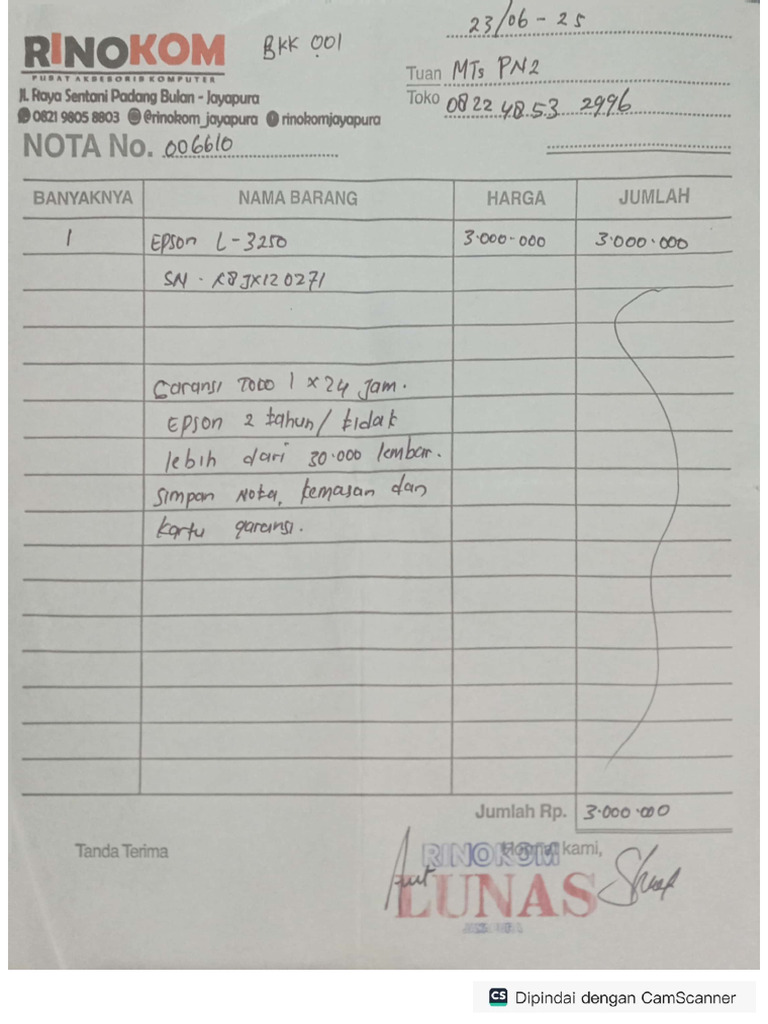 RINOKOM
PUSAT AKSESORIS KOMPUTER
BKK 001
23/06-25
Jl. Raya Sentani Padang Bulan - Jayapura
0821 9805 8803 @rinokom_jayapura rinokomjayapura
Tuan MTs PN2
Toko 0822 4853 2996
NOTA No. 006610
BANYAKNYA NAMA BARANG HARGA JUMLAH
1 EPSON L-3250 3.000.000 3.000.000
SN. X8JX120271
Garansi TOKO 1 x 24 Jam.
EPSON 2 tahun/ tidak
lebih dari 30.000 lembar.
Simpan Nota, kemasan dan
kartu garansi.
Jumlah Rp. 3.000.000
Tanda Terima
Hormat kami,
RINOKOM
LUNAS
JAYAPURA
CS Dipindai dengan CamScanner